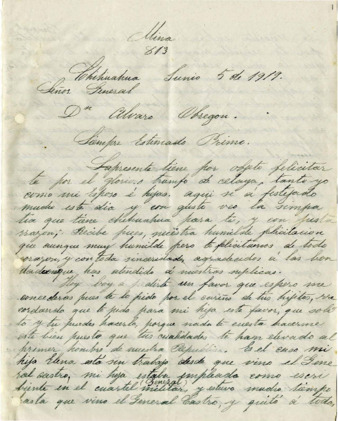 1
Mina
613
Chihuahua Junio 5 de 1919.
Señor General
Dn Alvaro Obregon.
Siempre Estimado Primo.
La presente tiene por objeto felicitar
te por el glorioso triunfo de celaya, tanto yo
como mi esposa e hijas, aqui se a festejado
mucho este dia y con gusto veo la simpa
tia que tiene chihuahua para ti, y con justa
razon; Recibe pues, nuestra humilde felicitacion
que aunque muy humilde pero te felicitamos de todo
corazon y con toda sinceridad, agradecidos a las bon
dades que has atendido a nuestras suplicas.
Hoy boy a pedirte un favor que espero me
concederas pues te lo pido por el cariño de tus hijitos, re
cordando que te pido para mi hija este favor, que solo
tu y tu puedes hacerlo, porque nada te cuesta hacerme
este bien puesto que tus cualidades te han elevado al
primer hombre de nuestra Es el caso mi
hija Elena está sin trabajo desde que vino el Gene
ral Castro, mi hija estaba empleada como escri
biente en el cuartel militar, y estuvo mucho tiempo
(General)
hasta que vino el General Castro, y quitó a todos